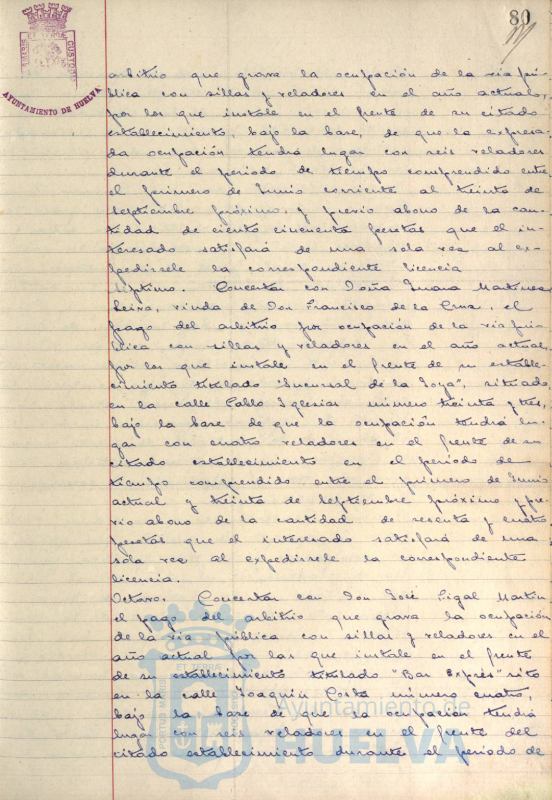 80
AYUNTAMIENTO DE HUELVA
arbitrio que grava la ocupación de la via pú-
blica con sillas y veladores en el año actual,
por los que instale en el frente de su citado
establecimiento, bajo la base, de que la expresa-
da ocupación tendrá lugar con seis veladores
durante el periodo de tiempo comprendido entre
el primero de Junio corriente al treinta de
septiembre próximo, y previo abono de la can-
tidad de ciento cincuenta pesetas que el in-
teresado satisfará de una sola vez al ex-
pedirsele la correspondiente licencia
Séptimo. Concertar con Doña Juana Martinez
viuda de Don Francisco de la Cruz, el
pago del arbitrio por ocupación de la via pú-
blica con sillas y veladores en el año actual,
por los que instale en el frente de su estable-
cimiento titulado "Sucursal de la Joya", situado
en la calle Pablo Iglesias número treinta y tres,
bajo la base de que la ocupación tendrá lu-
gar con cuatro veladores en el frente de su
citado establecimiento en el periodo de
tiempo comprendido entre el primero de Junio
actual y treinta de septiembre próximo y pre-
vio abono de la cantidad de sesenta y cuatro
pesetas que el interesado satisfará de una
sola vez al expedirsele la correspondiente
licencia.
Octavo. Concertar con Don José Pigal Martin
el pago del arbitrio que grava la ocupación
de la via pública con sillas y veladores en el
año actual por las que instale en el frente
de su establecimiento titulado "Bar Exprés" sito
en la calle Joaquín Costa número cuatro,
bajo la base de que la ocupación tendrá
lugar con seis veladores en el frente del
citado establecimiento durante el periodo de
Ayuntamiento de
HUELVA